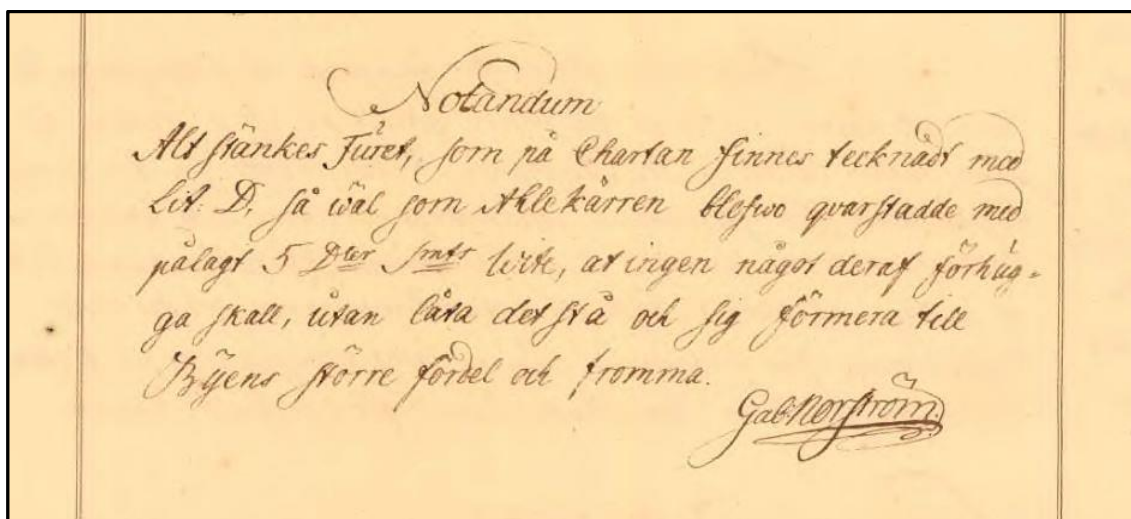 Notandum
Alt stänkes Furet, som på Chartan finnes tecknadt med
Lit: D, så wäl som Ahlekärren blefwo qvarstadde med
pålagt 5 Dler Smts wite, at ingen något deraf förhug-
ga skall, utan låta det stå och sig förmera till
Byens större fördel och fromma.
Gab: Norström.